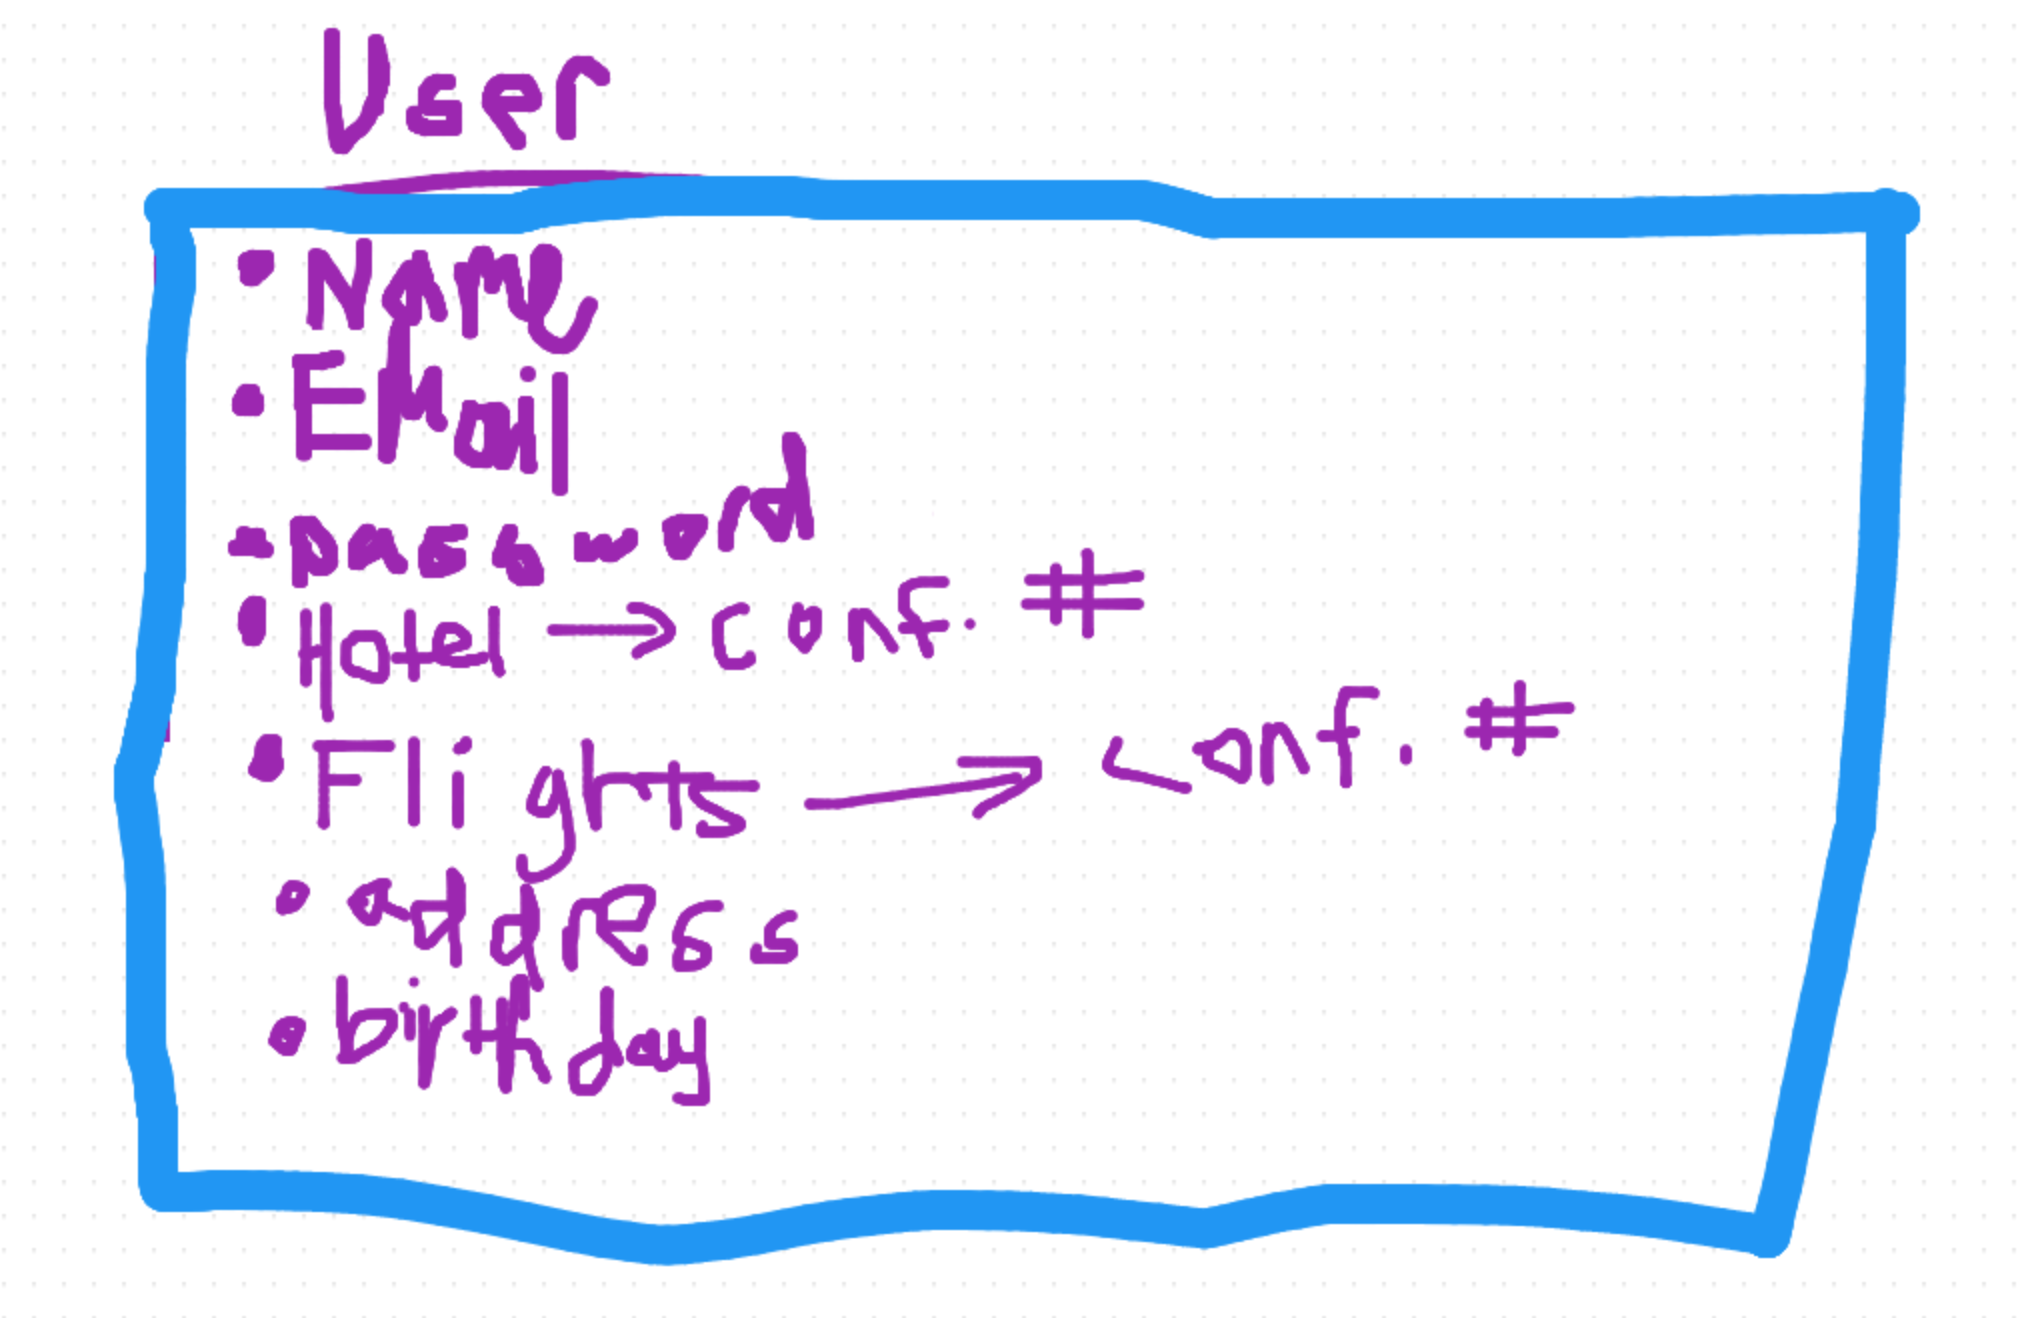 User
• Name
• EMail
- password
• Hotel → conf. #
• Flights → conf. #
• address
• birthday